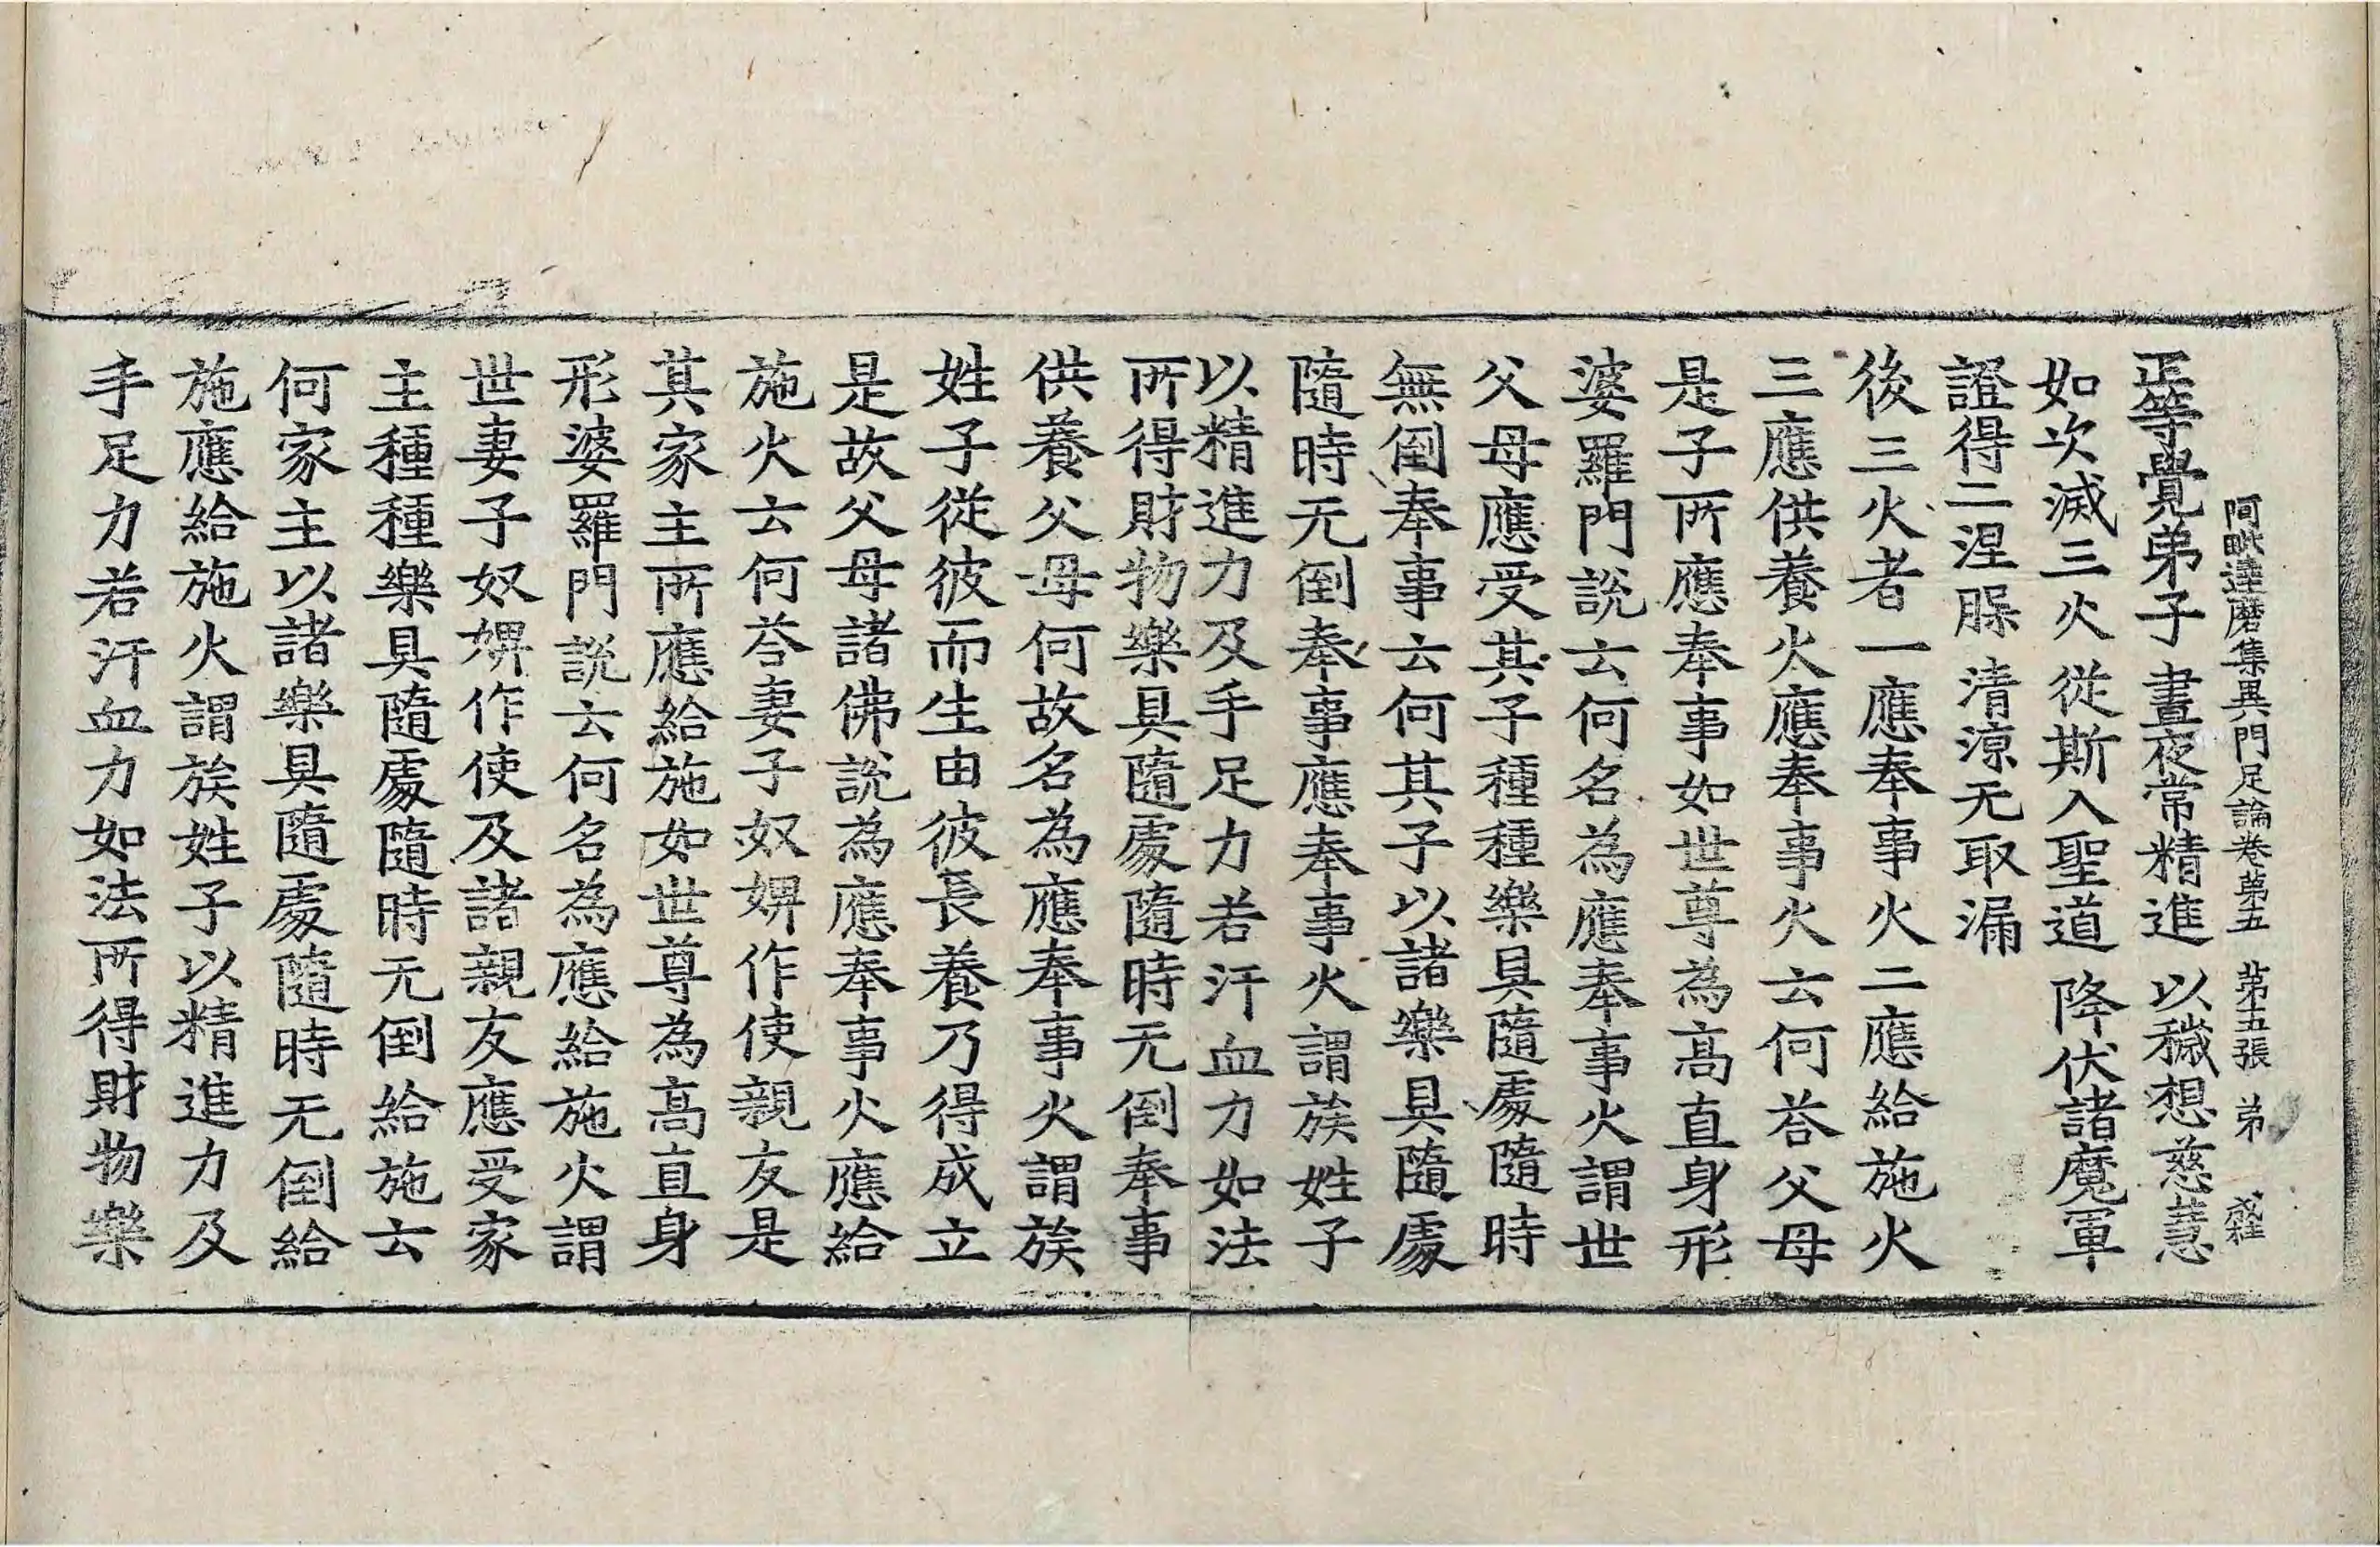 阿毗達磨集異門足論卷第五 第五張 弟
正等覺弟子 晝夜常精進 以穢想慈慧
如次滅三火 從斯入聖道 降伏諸魔軍
證得二涅脲 清涼无取漏
後三火者一應奉事火二應給施火
三應供養火應奉事火云何荅父母
是子所應奉事如世尊為高直身形
婆羅門說云何名為應奉事火謂世
父母應受其子種種樂具隨處隨時
無倒奉事云何其子以諸樂具隨處
隨時无倒奉事應奉事火謂族姓子
以精進力及手足力若汗血力如法
所得財物樂具隨處隨時无倒奉事
供養父母何故名為應奉事火謂族
姓子從彼而生由彼長養乃得成立
是故父母諸佛說為應奉事火應給
施火云何荅妻子奴婢作使親友是
其家主所應給施如世尊為高直身
形婆羅門說云何名為應給施火謂
世妻子奴婢作使及諸親友應受家
主種種樂具隨處隨時无倒給施云
何家主以諸樂具隨處隨時无倒給
施應給施火謂族姓子以精進力及
手足力若汗血力如法所得財物樂